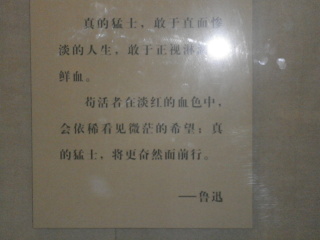 真的猛士，敢于直面惨
淡的人生，敢于正视淋
鲜血。
苟活者在淡红的血色中，
会依稀看见微茫的希望；真
的猛士，将更奋然而前行。
——鲁迅